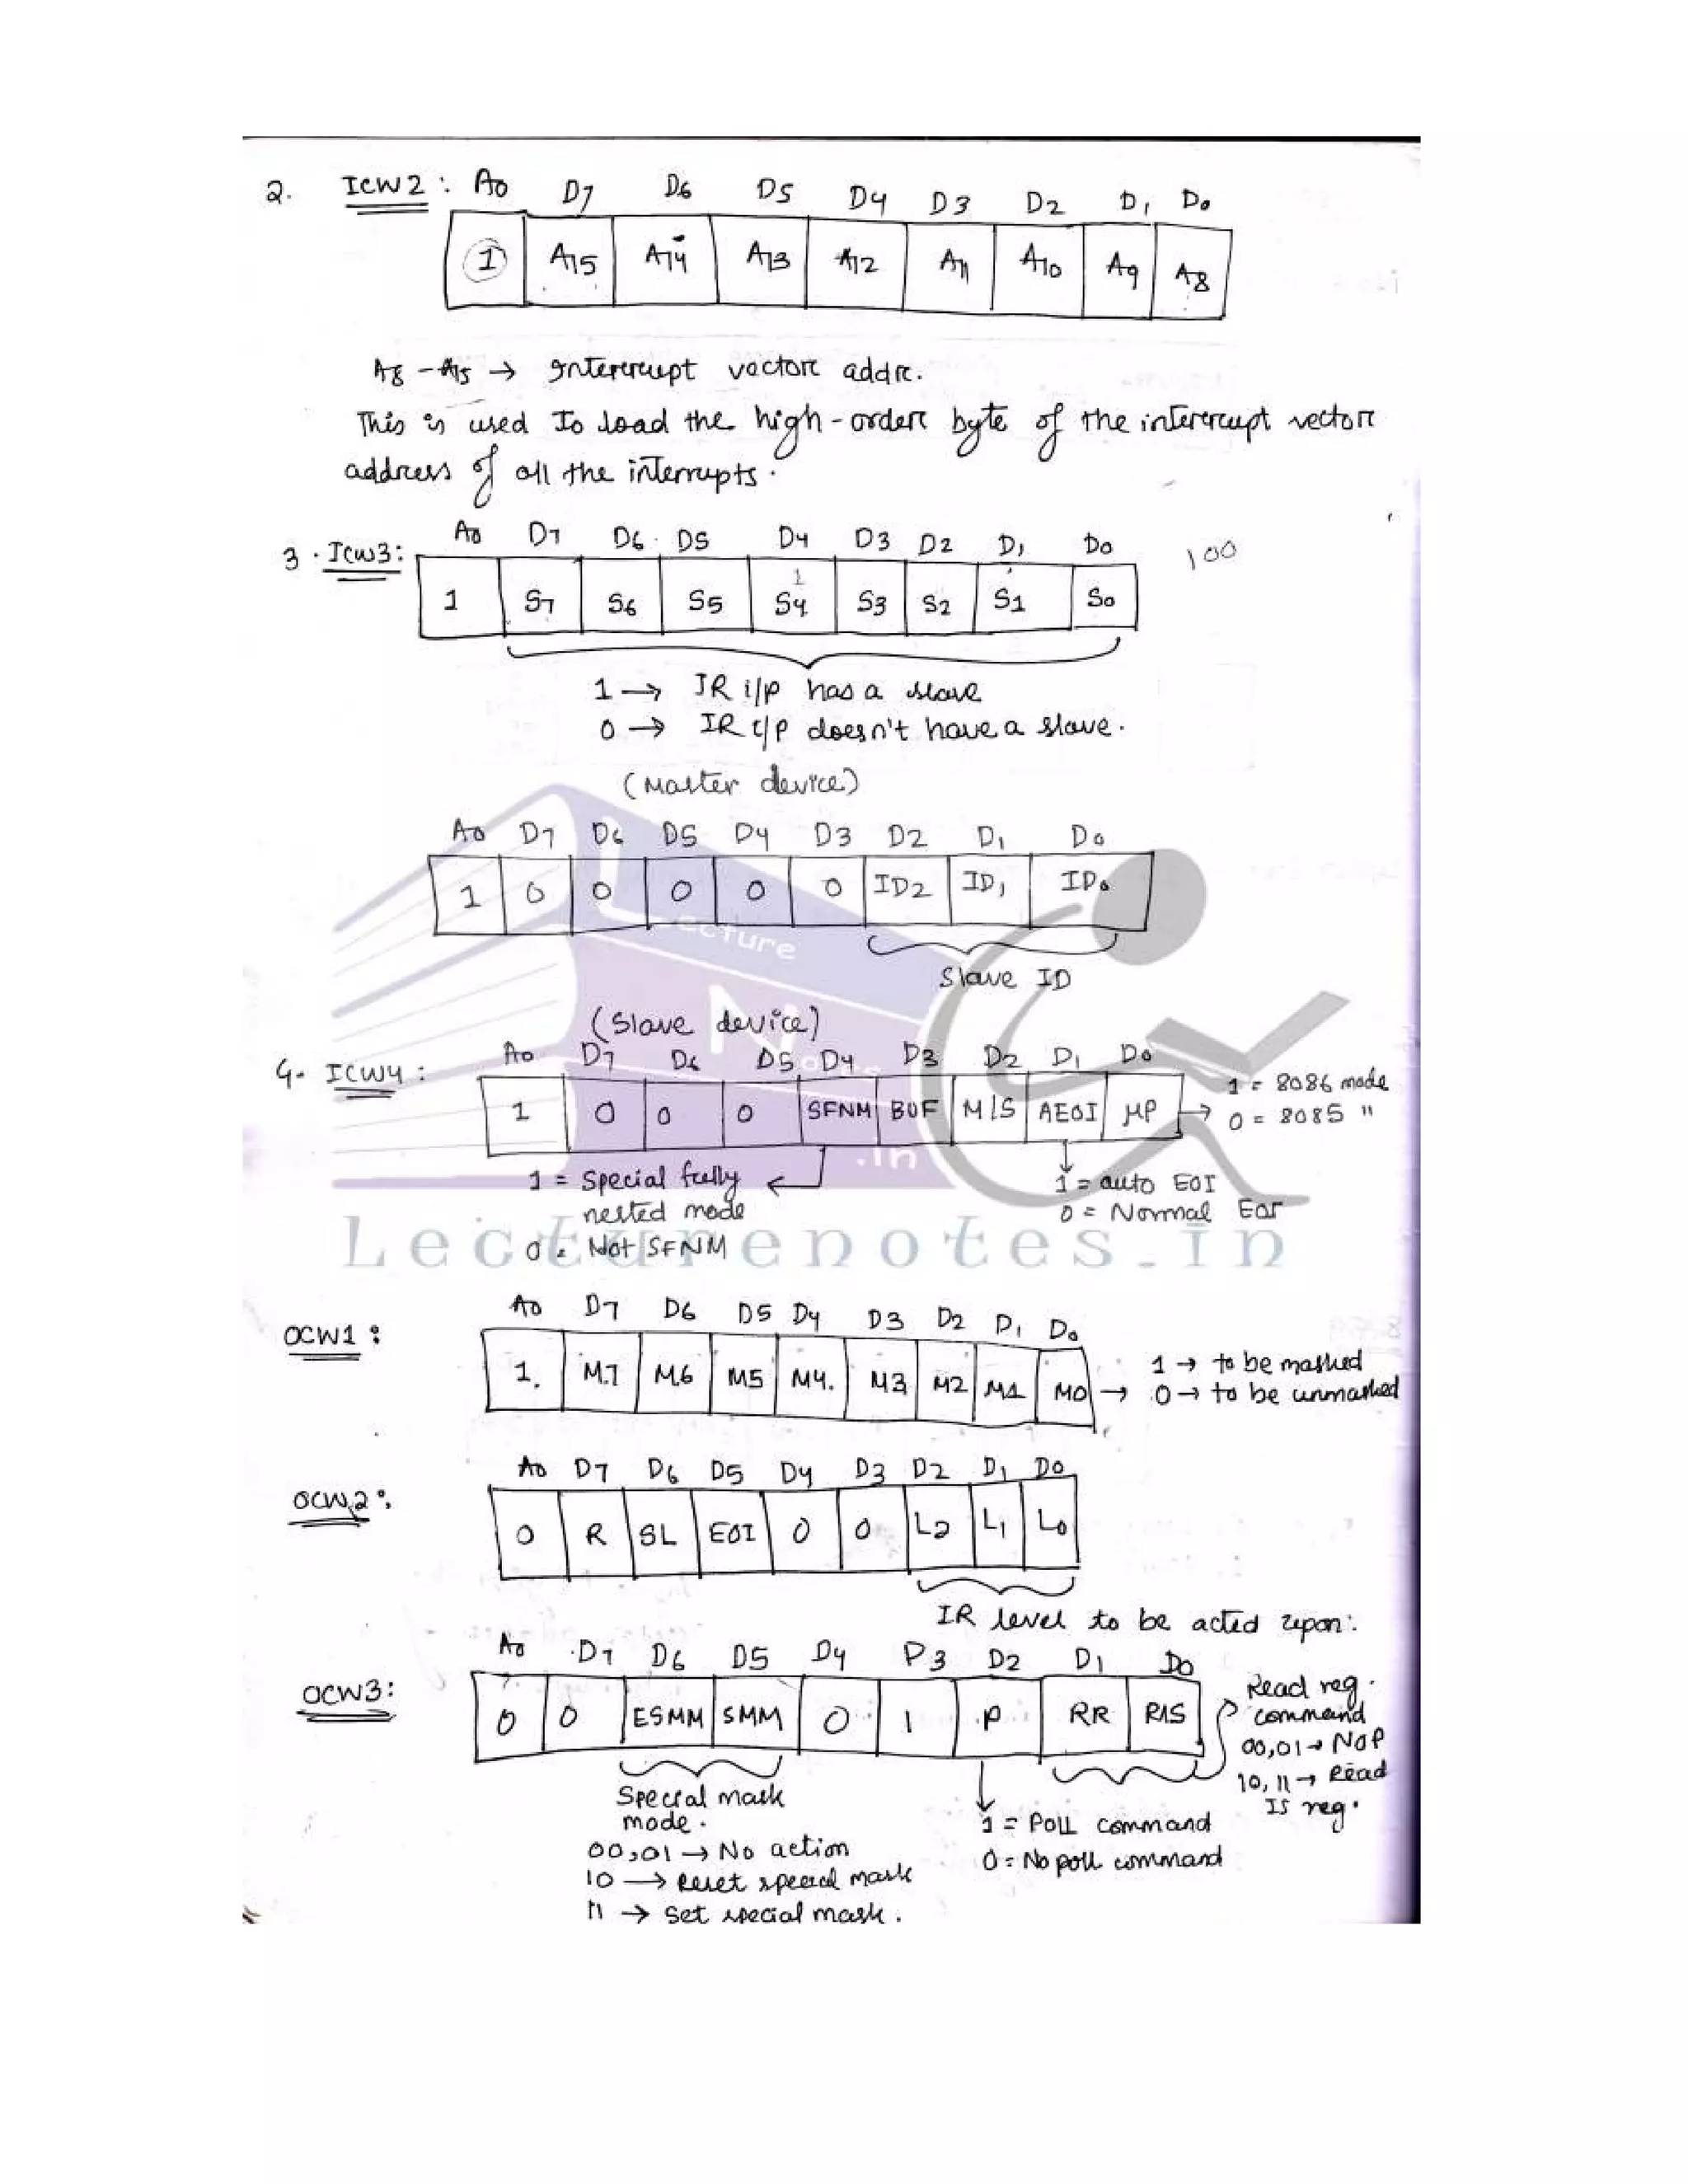 2. ICW2 : A0 D7 D6 D5 D4 D3 D2 D1 D0
1 A15 A14 A13 A12 A11 A10 A9 A8
A8 - A15 → Interrupt vector addr.
This is used To load the high-order byte of the interrupt vector
address of all the interrupts.
3. ICW3: A0 D7 D6 D5 D4 D3 D2 D1 D0
100
1
1 S7 S6 S5 S4 S3 S2 S1 S0
1 → IR i/p has a slave
0 → IR i/p doesn't have a slave.
(Master device)
A0 D7 D6 D5 D4 D3 D2 D1 D0
1 0 0 0 0 0 ID2 ID1 ID0
Lecture
Slave ID
(Slave device)
Notes
4. ICW4 : A0 D7 D6 D5 D4 D3 D2 D1 D0
1 0 0 0 SFNM BUF M/S AEOI μP → 1 = 8086 mode
0 = 8085 "
.in
1 = Special fully
nested mode
0 = Not SFNM
1 = auto EOI
0 = Normal EOI
Lecturenotes.in
OCW1 : A0 D7 D6 D5 D4 D3 D2 D1 D0
1. M7 M6 M5 M4. M3 M2 M1 M0 → 1 → to be masked
0 → to be unmasked
OCW2 : A0 D7 D6 D5 D4 D3 D2 D1 D0
0 R SL EOI 0 0 L2 L1 L0
IR level to be acted upon.
OCW3: A0 D7 D6 D5 D4 D3 D2 D1 D0
0 0 ESMM SMM 0 1 P RR RIS
Read reg.
command
00,01 → NOP
10, 11 → Read
IS reg.
Special mask
mode.
00,01 → No action
10 → Reset special mask
11 → Set special mask.
1 = Poll command
0 = No poll command